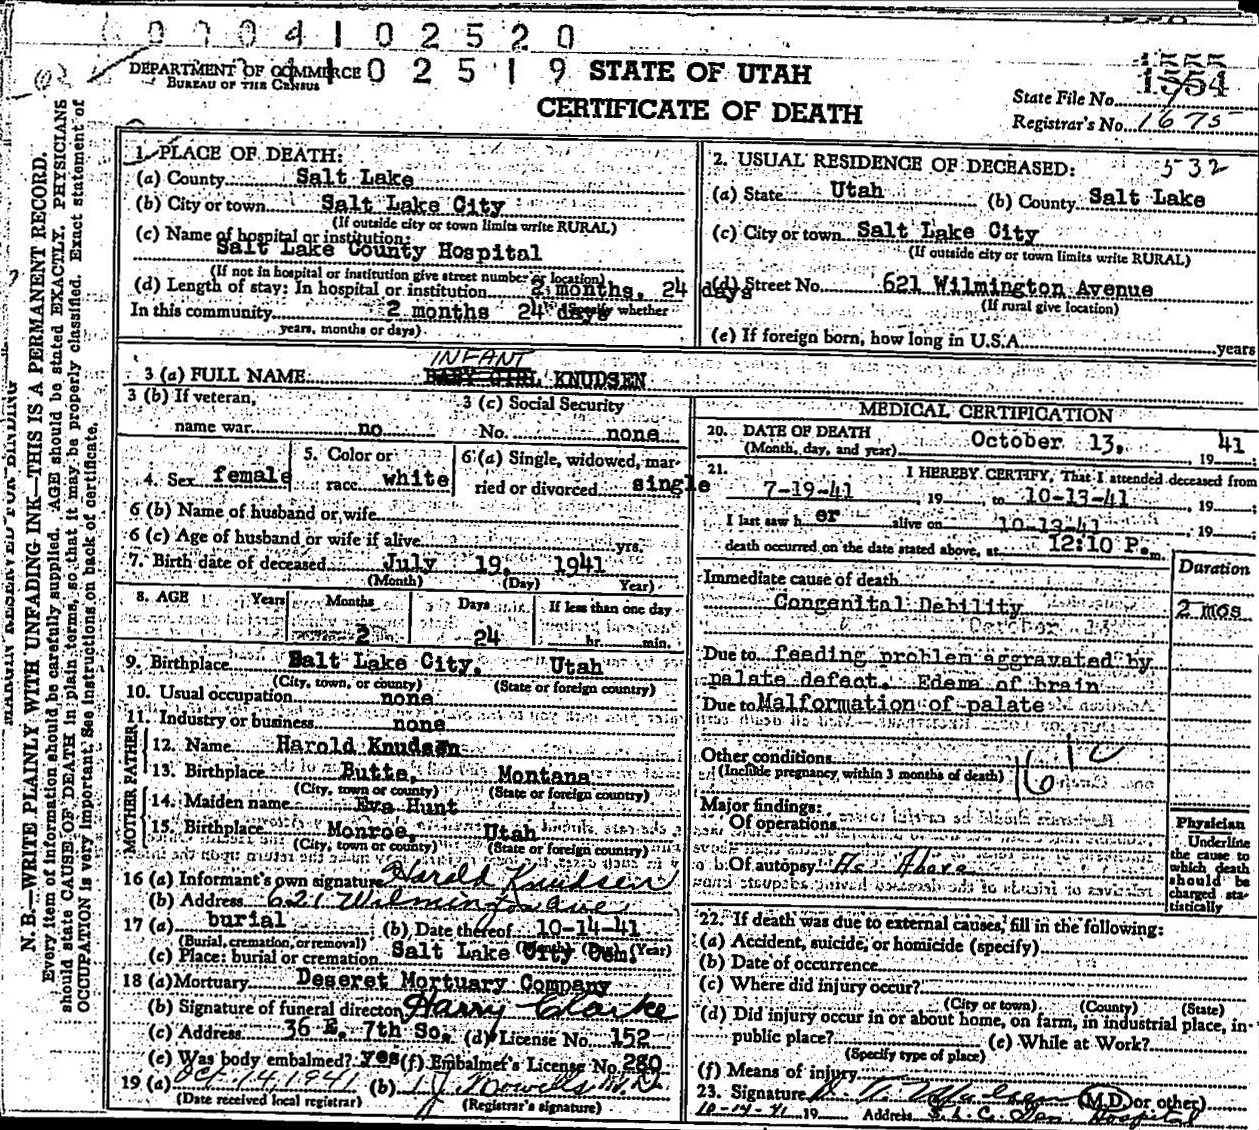 0 0 0 4 1 0 2 5 2 0
DEPARTMENT OF COMMERCE
BUREAU OF THE CENSUS
1 0 2 5 1 9
STATE OF UTAH
CERTIFICATE OF DEATH
State File No.
Registrar's No. 1675
N. B.—WRITE PLAINLY WITH UNFADING INK—THIS IS A PERMANENT RECORD.
Every item of information should be carefully supplied. AGE should be stated EXACTLY. PHYSICIANS
should state CAUSE OF DEATH in plain terms, so that it may be properly classified. Exact statement of
OCCUPATION is very important. See instructions on back of certificate.
1. PLACE OF DEATH:
(a) County Salt Lake
(b) City or town Salt Lake City
(If outside city or town limits write RURAL)
(c) Name of hospital or institution:
Salt Lake County Hospital
(If not in hospital or institution give street number or location)
(d) Length of stay: In hospital or institution 2 months, 24 days
In this community 2 months 24 days whether
years, months or days)
2. USUAL RESIDENCE OF DECEASED: 532
(a) State Utah (b) County Salt Lake
(c) City or town Salt Lake City
(If outside city or town limits write RURAL)
(d) Street No. 621 Wilmington Avenue
(If rural give location)
(e) If foreign born, how long in U.S.A. years
INFANT
3 (a) FULL NAME BABY GIRL KNUDSEN
3 (b) If veteran,
name war no
3 (c) Social Security
No. none
4. Sex female
5. Color or
race white
6 (a) Single, widowed, mar-
ried or divorced single
6 (b) Name of husband or wife
6 (c) Age of husband or wife if alive yrs.
7. Birth date of deceased July 19, 1941
(Month) (Day) Year)
8. AGE Years Months Days If less than one day
2 24 hr. min.
9. Birthplace Salt Lake City, Utah
(City, town, or county) (State or foreign country)
10. Usual occupation none
11. Industry or business none
FATHER
12. Name Harold Knudsen
13. Birthplace Butte, Montana
(City, town or county) (State or foreign country)
MOTHER
14. Maiden name Eva Hunt
15. Birthplace Monroe, Utah
(City, town or county) (State or foreign country)
16 (a) Informant's own signature Harold Knudsen
(b) Address 621 Wilmington Ave
17 (a) burial (b) Date thereof 10-14-41
(Burial, cremation, or removal) (Month) (Day) (Year)
(c) Place: burial or cremation Salt Lake City Cem.
18 (a) Mortuary Deseret Mortuary Company
(b) Signature of funeral director Harry Clarke
(c) Address 36 E. 7th So. (d) License No. 152
(e) Was body embalmed? yes (f) Embalmer's License No. 280
19 (a) Oct. 14, 1941 (b)
(Date received local registrar) (Registrar's signature)
MEDICAL CERTIFICATION
20. DATE OF DEATH October 13, 41
(Month, day, and year) 19
21. I HEREBY CERTIFY, That I attended deceased from
7-19-41 19 to 10-13-41 19 ;
I last saw h er alive on 10-13-41 19 ;
death occurred on the date stated above, at 12:10 P. m.
Duration
Immediate cause of death
Congenital Debility 2 mos
Due to feeding problem aggravated by
palate defect. Edema of brain
Due to Malformation of palate
Other conditions
(Include pregnancy within 3 months of death)
Major findings:
Of operations
Of autopsy As Above
Physician
Underline
the cause to
which death
should be
charged sta-
tistically
22. If death was due to external causes, fill in the following:
(a) Accident, suicide, or homicide (specify)
(b) Date of occurrence
(c) Where did injury occur?
(City or town) (County) (State)
(d) Did injury occur in or about home, on farm, in industrial place, in
public place? (e) While at Work?
(Specify type of place)
(f) Means of injury
23. Signature (M.D. or other)
10-14-41 19 Address S. L. C. Gen. Hospital